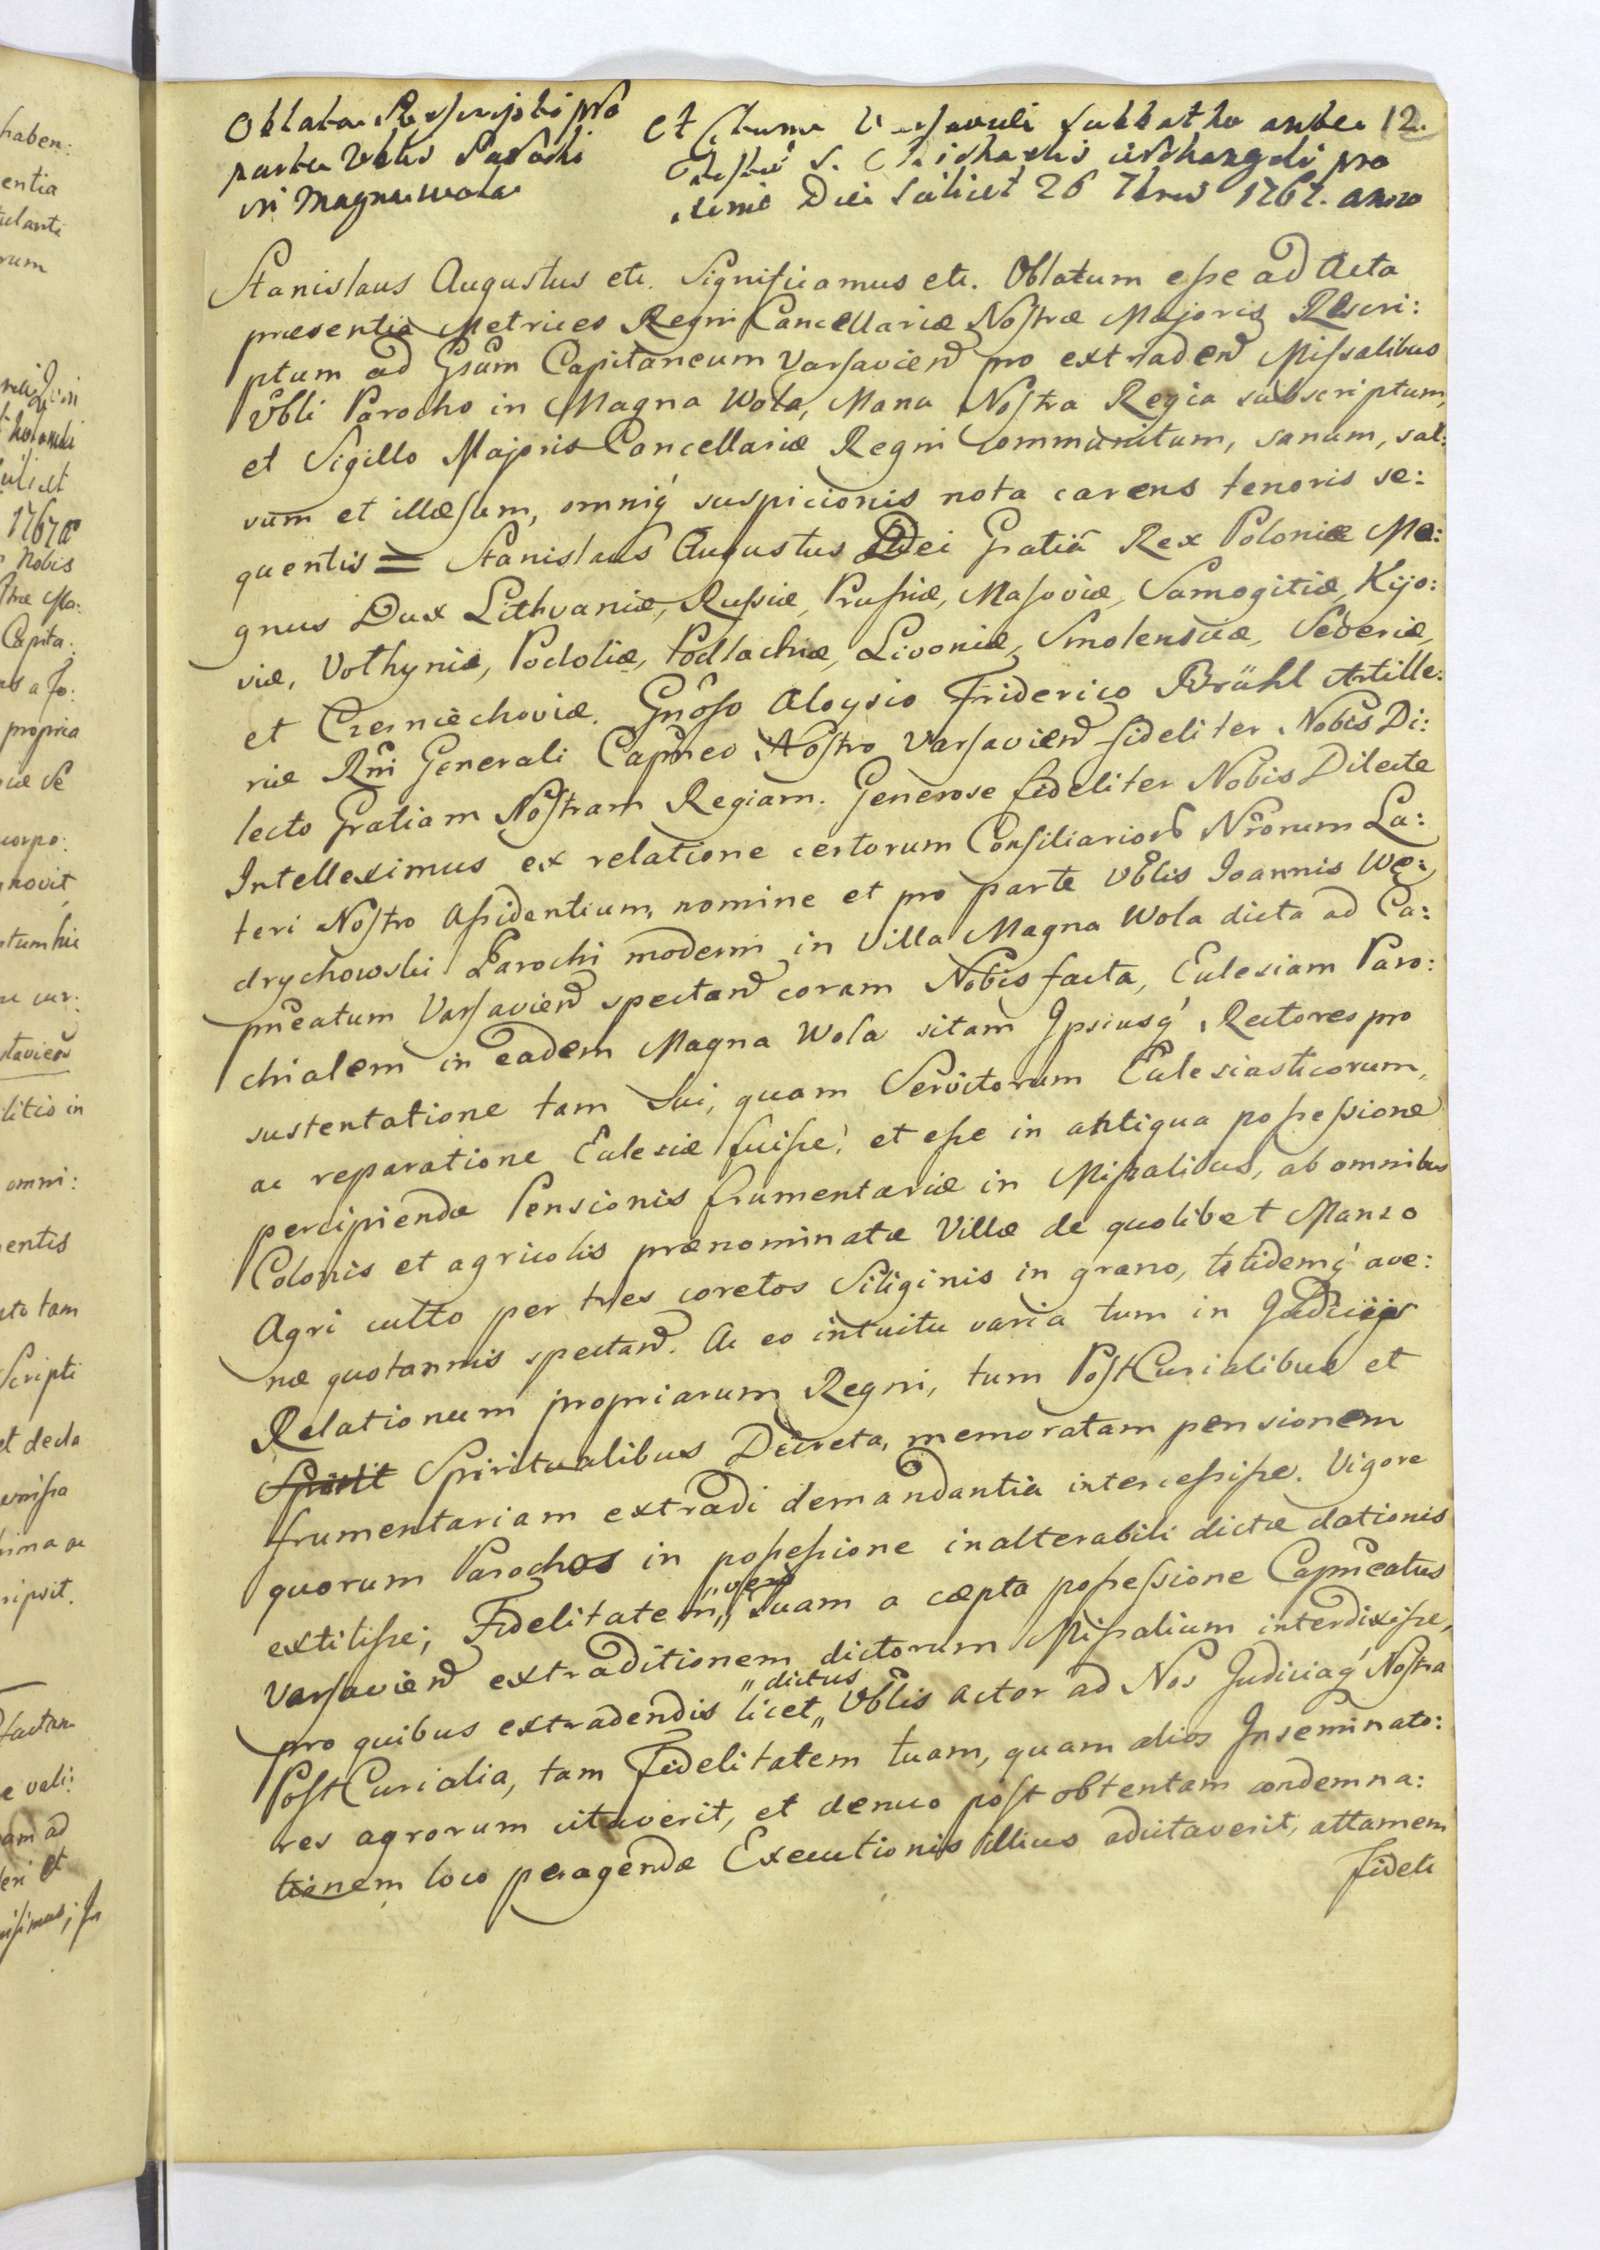 Oblata Rescripti pro
parte Vblis Parochi
in Magna Wola
12.
Actum Varsaviae Sabbatho ante
Festum S. Michaelis Archangeli pro
ximo Die scilicet 26 7bris 1767. anno
Stanislaus Augustus etc. Significamus etc. Oblatum esse ad Acta
præsentia Metrices Regni Cancellariæ Nostræ Majoris Rescri:
ptum ad Gsum Capitaneum Varsavien pro extraden Missalibus
Vbli Parocho in Magna Wola, Manu Nostra Regia subscriptum,
et Sigillo Majoris Cancellariæ Regni communitum, sanum, sal:
vum et illæsum, omniq́ suspicionis nota carens tenoris se:
quentis = Stanislaus Augustus Dei Gratiâ Rex Poloniæ Ma:
gnus Dux Lithvaniæ, Russiæ, Prussiæ, Masoviæ, Samogitiæ, Kijo:
viæ, Volhyniæ, Podoliæ, Podlachiæ, Livoniæ, Smolensciæ, Severiæ,
et Czerniechoviæ. Gnôso Aloysio Friderico Brühl Artille:
riæ Rñi Generali Capñeo Nostro Varsavien fideliter Nobis Di:
lecto Gratiam Nostram Regiam. Generose fideliter Nobis Dilecte
Intelleximus ex relatione certorum Consiliarior Nrorum La:
teri Nostro Assidentium, nomine et pro parte Vblis Joannis We:
drychowski Parochi moderni in Villa Magna Wola dicta ad Ca:
pñeatum Varsavien spectan coram Nobis facta, Eclesiam Paro:
chialem in eadem Magna Wola sitam Ipsiusq́ Rectores pro
sustentatione tam sui, quam Servitorum Eclesiasticorum,
ac reparatione Eclesiæ fuisse, et esse in antiqua possessione
percipiendæ Pensionis frumentariæ in Missalibus, ab omnibus
Colonis et agricolis prænominatæ Villæ de quolibet Manso
Agri culto per tres coretos Siliginis in grano, totidemq́ ave:
næ quotannis spectan. Ac eo intuitu varia tum in Judiciis
Relationum propriarum Regni, tum PostCurialibus et
Spirit Spiritualibus Decreta, memoratam pensionem
frumentariam extradi demandantia intercessisse. Vigore
quorum Parochos in possessione inalterabili dictæ dationis
extitisse; Fidelitatem „ vero „ suam a cæpta possessione Capñeatus
Varsavien extraditionem dictorum Missalium interdixisse,
pro quibus extradendis licet „ dictus „ Vblis Actor ad Nos Judiciaq́ Nostra
PostCurialia, tam Fidelitatem tuam, quam alios Inseminato:
res agrorum citaverit, et denuo post obtentam condemna:
tionem loco peragendæ Executionis illius adcitaverit, attamen
fideli